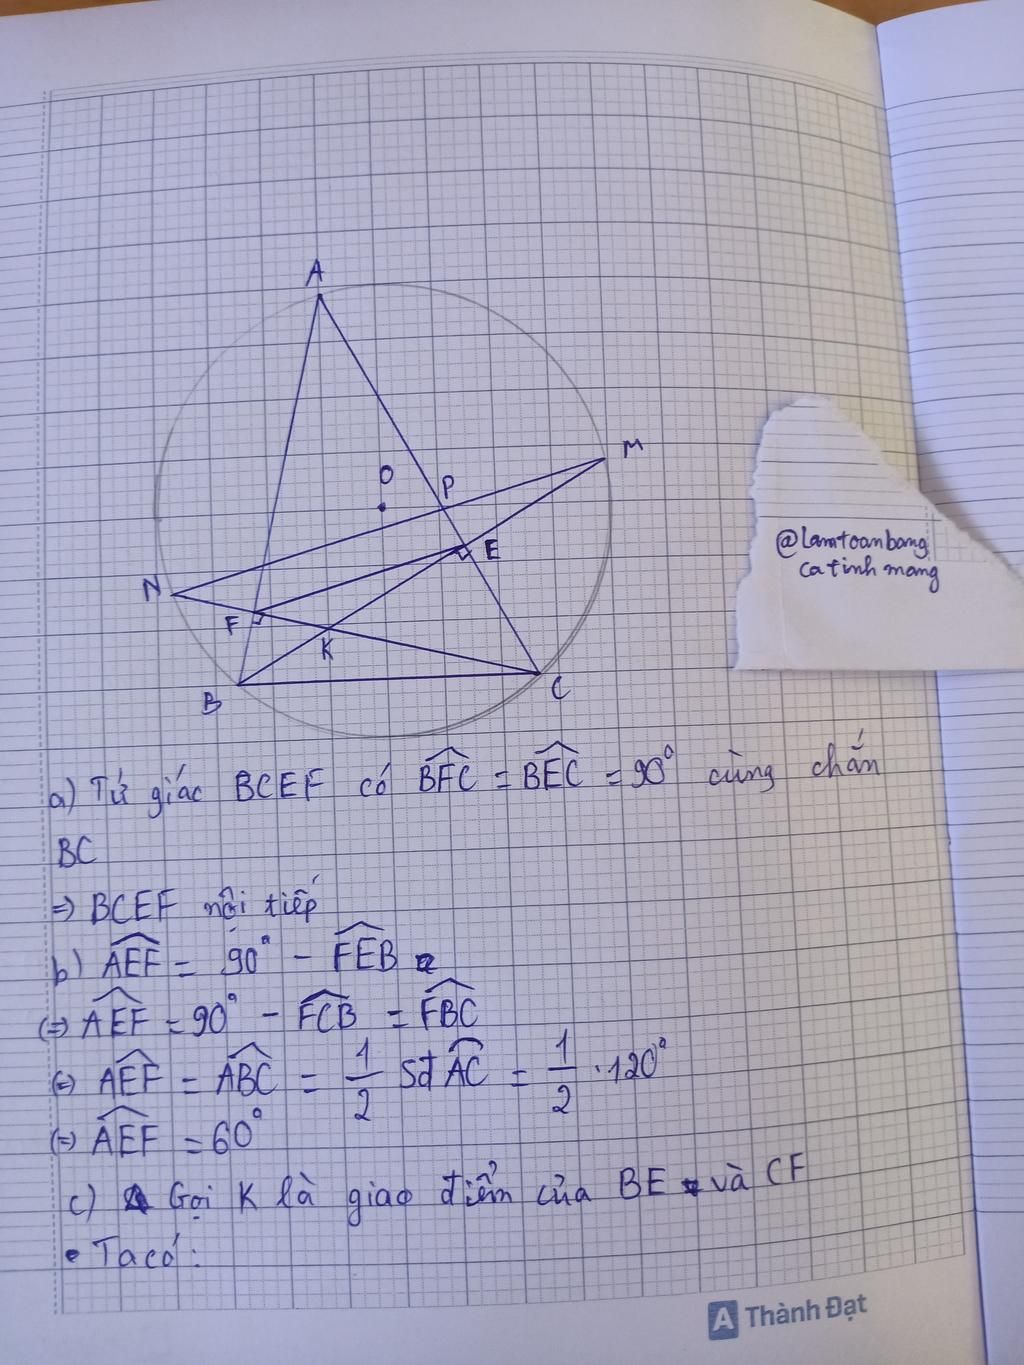 A
M
O
P
E
N
F
K
B
C
@lamtoanbang
catinhmang
a) Tứ giác BCEF có \widehat{BFC} = \widehat{BEC} = 90° cùng chắn
BC
=> BCEF nội tiếp
b) \widehat{AEF} = 90° - \widehat{FEB}
(=) \widehat{AEF} = 90° - \widehat{FCB} = \widehat{FBC}
(=) \widehat{AEF} = \widehat{ABC} = 1/2 Sđ \overparen{AC} = 1/2 . 120°
(=) \widehat{AEF} = 60°
c) Gọi K là giao điểm của BE và CF
• Ta có:
A Thành Đạt